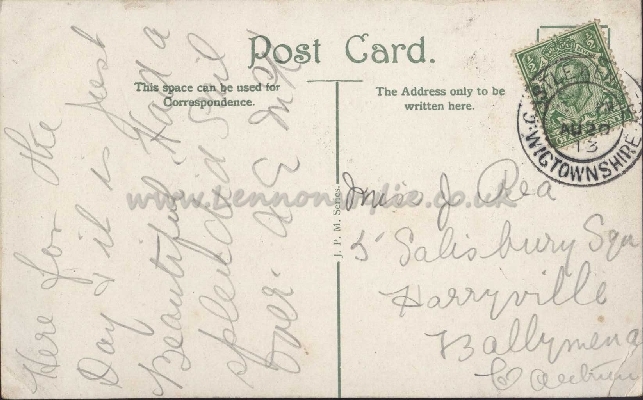 Post Card.
This space can be used for
Correspondence.
The Address only to be
written here.
J. P. M. Series.
Here for the
Day & it is just
Beautiful. Had a
splendid sail
over. a
J. Rea
5 Salisbury Sqr
Harryville
Ballymena
Co Antrim
WIGTOWNSHIRE
AU 20
13
www.Lennonwylie.co.uk